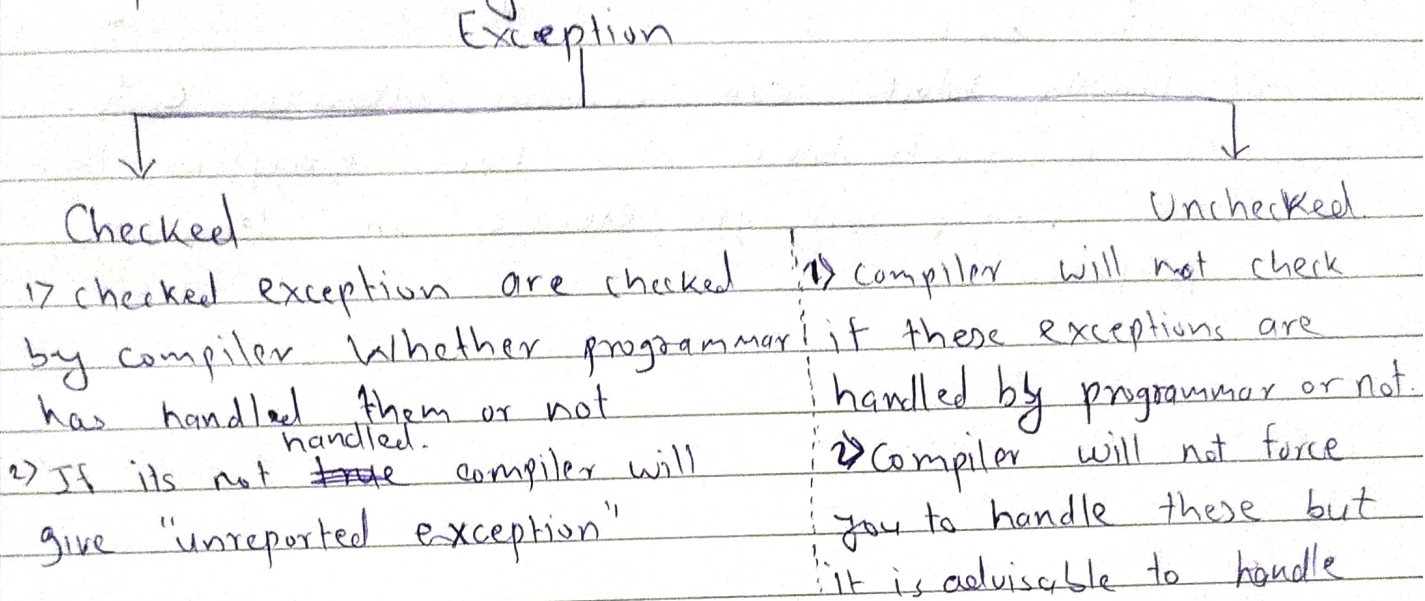 Exception
Checked
1) checked exception are checked
by compiler Whether programmar
has handled them or not
handled.
2) If its not compiler will
give "unreported exception"
Unchecked
1) compiler will not check
if these exceptions are
handled by programmar or not.
2) Compiler will not force
you to handle these but
it is advisable to handle